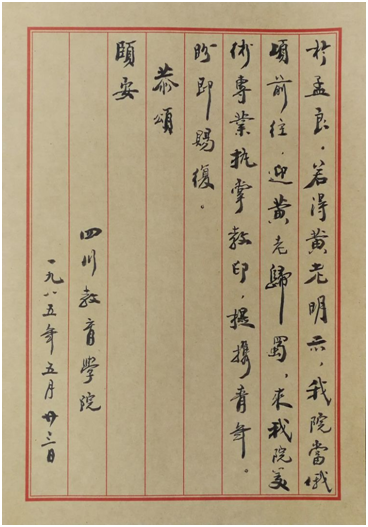 於孟良。若得黄老明示，我院當俄
頃前往，迎黄老歸蜀，來我院美
術專業执掌教印，提攜青年。
盼即賜復。
恭頌
頤安
四川教育學院
一九八五年五月廿三日